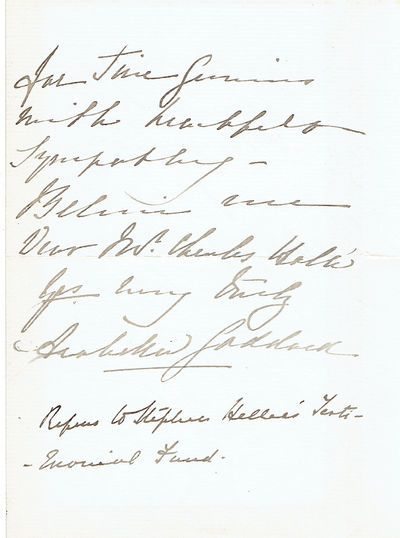 for True Genius
with heartfelt
Sympathy –
Believe me
Dear Mr. Charles Hallé
Yrs very truly
Arabella Goddard
Refers to Stephen Heller's Testi-
-monial Fund.